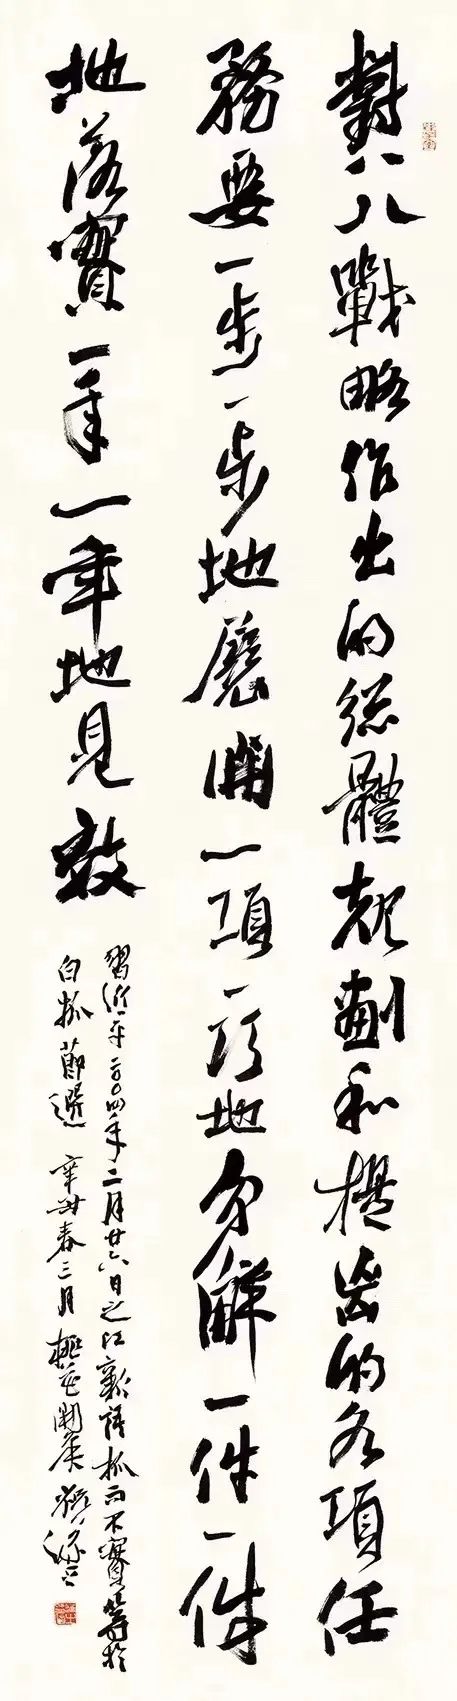 對八八戰略作出的總體規劃和提出的各項任
務要一步一步地展開一項一項地分解一件一件
地落實一年一年地見效
習近平二〇〇四年二月廿六日之江新語抓而不實等於
白抓節選 辛丑春三月 桃花開候